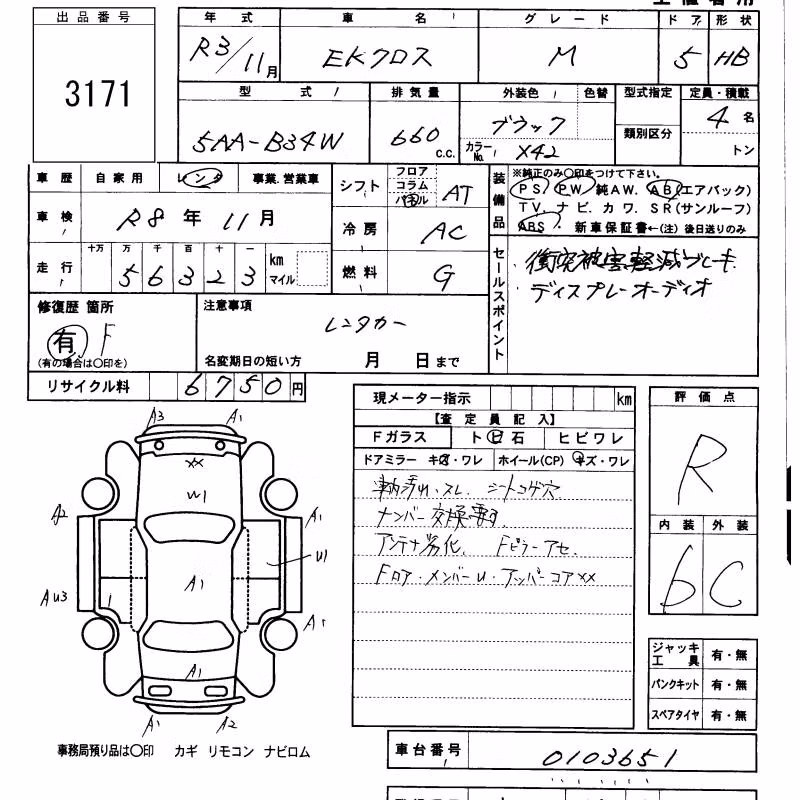 出品番号
3171
年式 車名 グレード ドア 形状
R3/11月 EKクロス M 5 HB
型式 排気量 外装色 色替 型式指定 定員・積載
5AA-B34W 660 c.c. ブラック 類別区分 4名
カラーNo. X42 トン
車歴 自家用 レンタ 事業.営業車
車検 R8年 11月
走行 十万 万 千 百 十 一 km マイル
56323
シフト フロア コラム パネル AT
冷房 AC
燃料 G
装備品 ※純正のみ〇印をつけて下さい。
PS PW 純AW. AB(エアバック)
TV. ナビ. カワ. SR(サンルーフ)
ABS . 新車保証書←(注) 後日送りのみ
セールスポイント
衝突被害軽減ブレーキ
ディスプレーオーディオ
修復歴 箇所
有 F
(有の場合は〇印を)
注意事項
レンタカー
名変期日の短い方 月 日まで
リサイクル料 6750円
現メーター指示 km
【査定員記入】
Fガラス ト ビ 石 ヒビワレ
ドアミラー キズ・ワレ ホイール(CP) キズ・ワレ
車内汚れ・スレ. シートコゲ穴
ナンバー交換要す
アンテナ劣化. Fピラーアセ.
Fロア・メンバーU・アッパーコアxx
評価点
R
内装 外装
6 C
ジャッキ工具 有・無
パンクキット 有・無
スペアタイヤ 有・無
A3 A1
xx
W1
A2 A1
U1
A1
AU3 A1
A1
A1 A2
事務局預り品は〇印 カギ リモコン ナビロム
車台番号 0103651